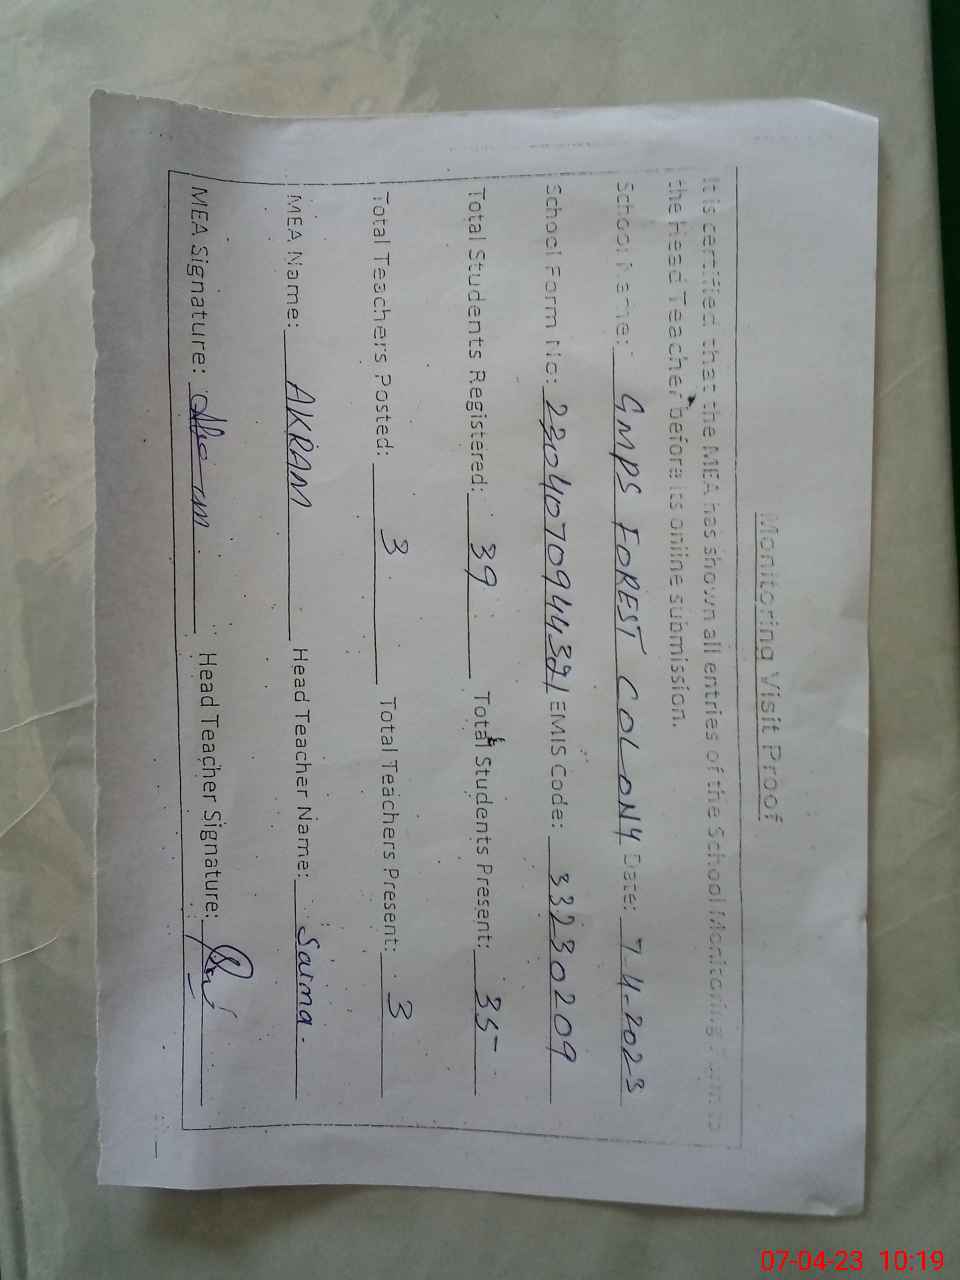 Monitoring Visit Proof
It is certified that the MEA has shown all entries of the School Monitoring Form to
the Head Teacher before its online submission.
School Name: GMPS FOREST COLONY Date: 7-4-2023
School Form No: EMIS Code: 33230209
Total Students Registered: 39 Total Students Present: 35
Total Teachers Posted: 3 Total Teachers Present: 3
MEA Name: AKRAM Head Teacher Name: Saima.
MEA Signature: Head Teacher Signature:
07-04-23 10:19